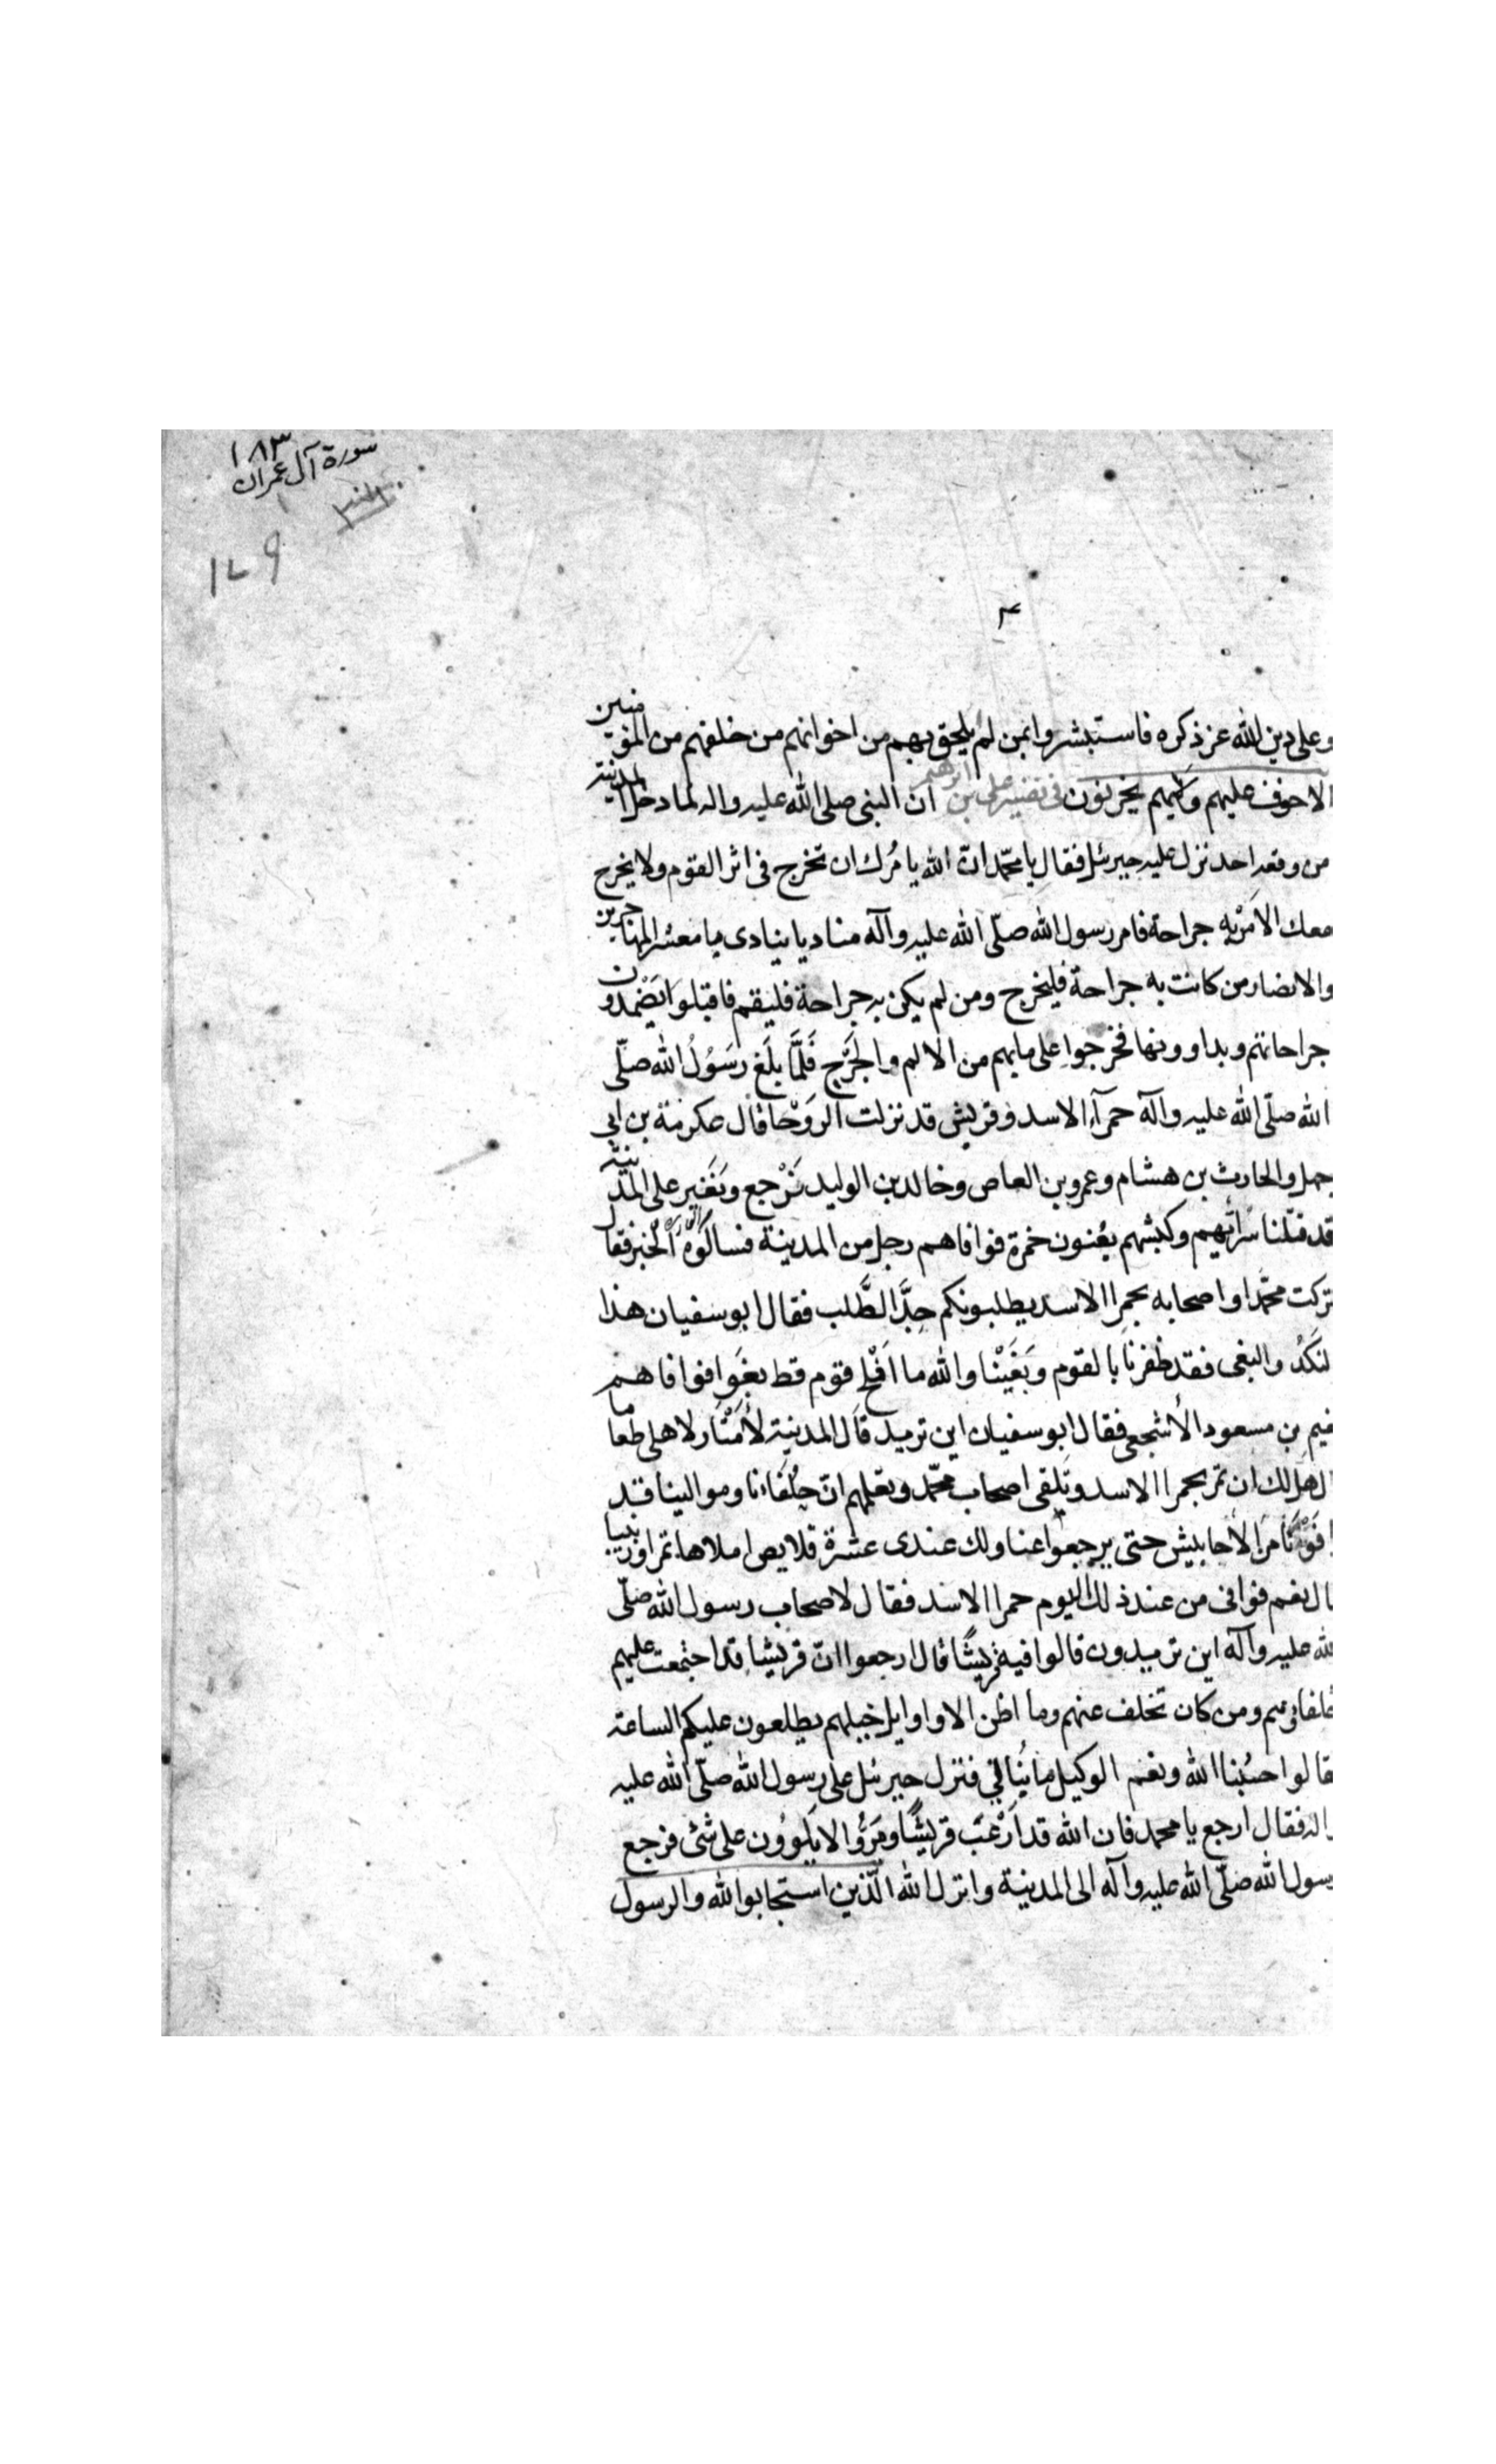 ١٨٣
سورة آل عمران
١٧٩
وعلى دين الله عز ذكره فاستبشروا بمن لم يلحق بهم من اخوانهم من خلفهم من المؤمنين
الا خوف عليهم ولا هم يحزنون فى تفسير على بن ابرهيم ان النبى صلى الله عليه واله لما دخل المدينة
من وقعه احد نزل عليه جبرئيل فقال يا محمّد انّ الله يامُرك ان تخرج فى اثر القوم ولا يخرج
معك الا مَنْ به جراحة فامر رسول الله صلّى الله عليه وآله مناديا ينادى يا معشر المهاجرين
والانصار من كانت به جراحة فليخرج ومن لم يكن به جراحة فليقم فاقبلوا يَضْمدون
جراحاتهم ويداوونها فخرجوا على ما بهم من الالم والجَرْح فَلَمَّا بلَغ رسَوُلُ الله صلّى
الله صلّى الله عليه وآله حمرآء الاسد وقريش قد نزلت الرَوْحا قال عكرمة بن ابى
جهل والحارث بن هشام وعمرو بن العاص وخالد بن الوليد نَرْجع ونَغير على المدينة
قد قتلنا سَراتهم وكبشهم يعْنون حمزة فوافاهم رجل من المدينة فسالُوُه الخبر فقال
تركت محمّدا واصحابه بحمرا الاسد يطلبونكم جِدَّ الطَّلب فقال ابو سفيان هذا
لنكَدُ والبغى فقد ظفرنا بالقوم وبَغَيْنا والله ما اَفْلح قوم قط بغَوا فوافاهم
نعيم بن مسعود الأشجعى فقال ابو سفيان اين تريد قال المدينة لأمْتار لاهلى طعاما
ال هل لك ان تمر بحمرا الاسد وتَلقى اصحاب محمّد وتعلمهم انّ حُلفاءنا وموالينا قد
افَوْنا من الاحابيش حتى يرجعوا عنا ولك عندى عشرة قلايص املاها تمرا وزبيبا
ال نعم فوافى من عند ذلك اليوم حمرا الاسد فقال لاصحاب رسول الله صلّى
لله عليه وآله اين تريدون قالوا فيه قريشًا قال ارجعوا انّ قريشا قد اجتمعت عليهم
حلفاؤهم ومن كان تخلف عنهم وما اظن الا واوايل خيلهم يطلعون عليكم الساعة
قالوا حسْبنا الله ونعم الوكيل ما نُبالي فنزل جبرئيل على رسول الله صلّى الله عليه
واله فقال ارجع يا محمد فان الله قد اَرْعَبَ قريشًا ومرُّوا لا يَلْوُون على شئ فرجع
رسول الله صلّى الله عليه وآله الى المدينة وانزل الله الّذين استجابوا لله والرسول